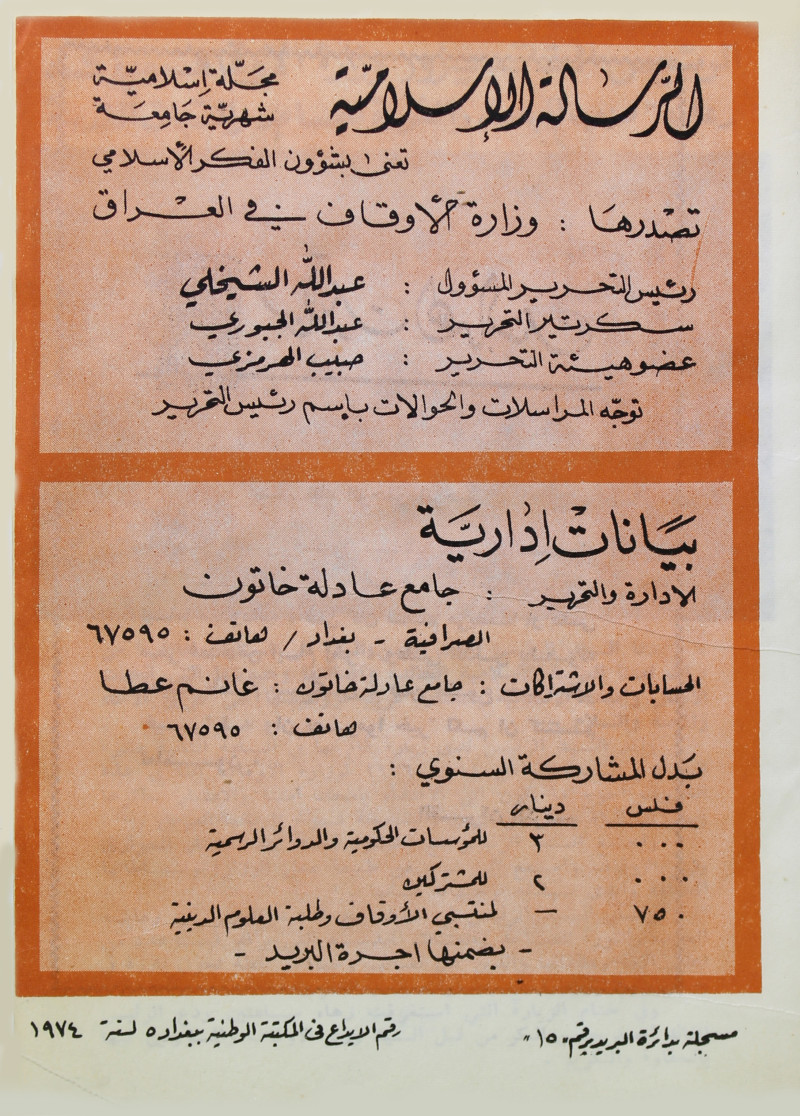 الرسالة الإسلاميّة
مجلّة إسْلاميّة
شهريّة جَامِعَة
تعنى بشؤون الفكر الأسلامي
تصْدرهَا : وزارة الأوقاف في العراق
رئيس التحرير المسؤول : عبدالله الشيخلي
سكرتير التحرير : عبدالله الجبوري
عضو هيئة التحرير : حبيب الهرمزي
توجّه المراسلات والحوالات بإسم رئيس التحرير
بيَانات إداريَّة
الادارة والتحرير : جامع عادلة خاتون
الصرافية - بغداد / هاتف : ٦٧٥٩٥
الحسابات والاشتراكات : جامع عادلة خاتون : غانم عطا
هاتف : ٦٧٥٩٥
بَدل المشاركة السنوي :
فلس دينار
٠٠٠ ٣ للمؤسسات الحكومية والدوائر الرسمية
٠٠٠ ٢ للمشتركين
٧٥٠ — لمنتسبي الأوقاف وطلبة العلوم الدينية
- بضمنها اجرة البريد -
مسجلة بدائرة البريد برقم "١٥"
رقم الايداع في المكتبة الوطنية ببغداد ٥ لسنة ١٩٧٤